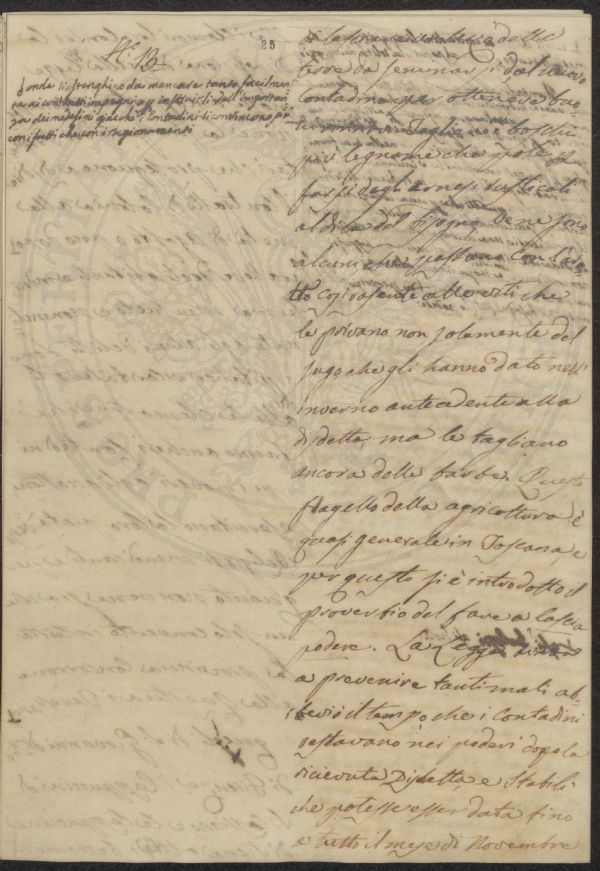 25
N.o 13
onde si astenghino da mancare tanto facilmen
te ai contratti impegni o p. instruirli dell'importan
za dei medesimi giacchè i Contadini si convincono più
con i fatti che con i ragionamenti
delle
terre da seminarsi dal nuovo
Contadino per ottenere buo
Taglia i boschi
pei legname che
farsi degli arnesi rusticali
aldilà del bisogno. Ve ne sono
alcuni che passano con l'ara
tro così rasente alle viti che
le privano non solamente del
sugo che gli hanno dato nell'
inverno antecedente alla
disdetta, ma le tagliano
ancora delle barbe. Questo
flagello della agricoltura è
quasi generale in Toscana, e
per questo si è introdotto il
proverbio del fare a lascia
podere. La Legge
a prevenire tanti mali ab
breviò il tempo che i Contadini
restavano nei poderi dopo la
ricevuta Disdetta, e stabilì
che potesse esser data fino
a tutto il mese di Novembre